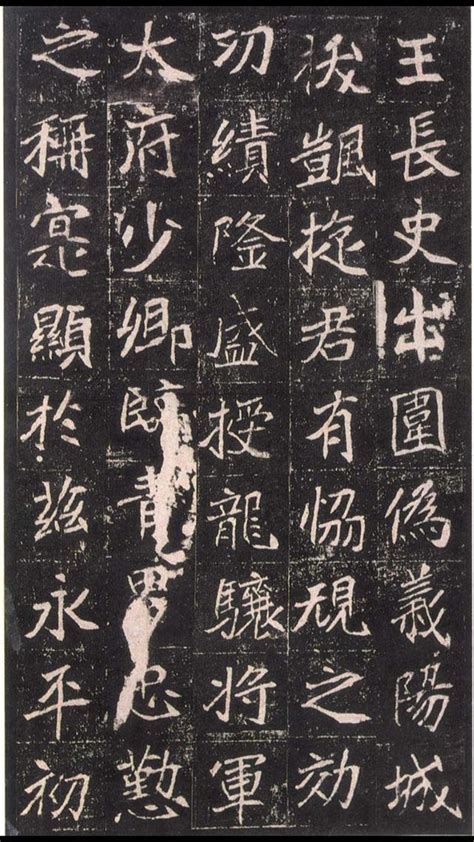 王長史出圍偽義陽城
拔凱旋君有協規之効
功績隆盛授龍驤將軍
太府少卿臨青男忠懃
之稱寔顯於茲永平初